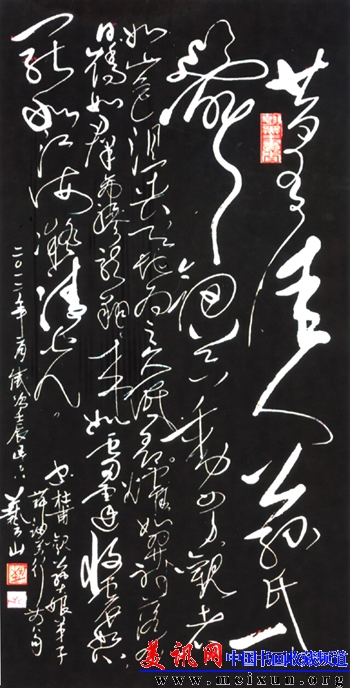 昔有佳人公孙氏一
舞剑器动四方观者
如山色沮丧天地为之久低昂㸌如羿射九
日矫如群帝骖龙翔来如雷霆收震怒
罢如江海凝清光
二〇一二年 岁次壬辰
书杜甫观公孙大娘弟子
舞剑器行
美讯网 中国书画收藏频道
www.meixun.org